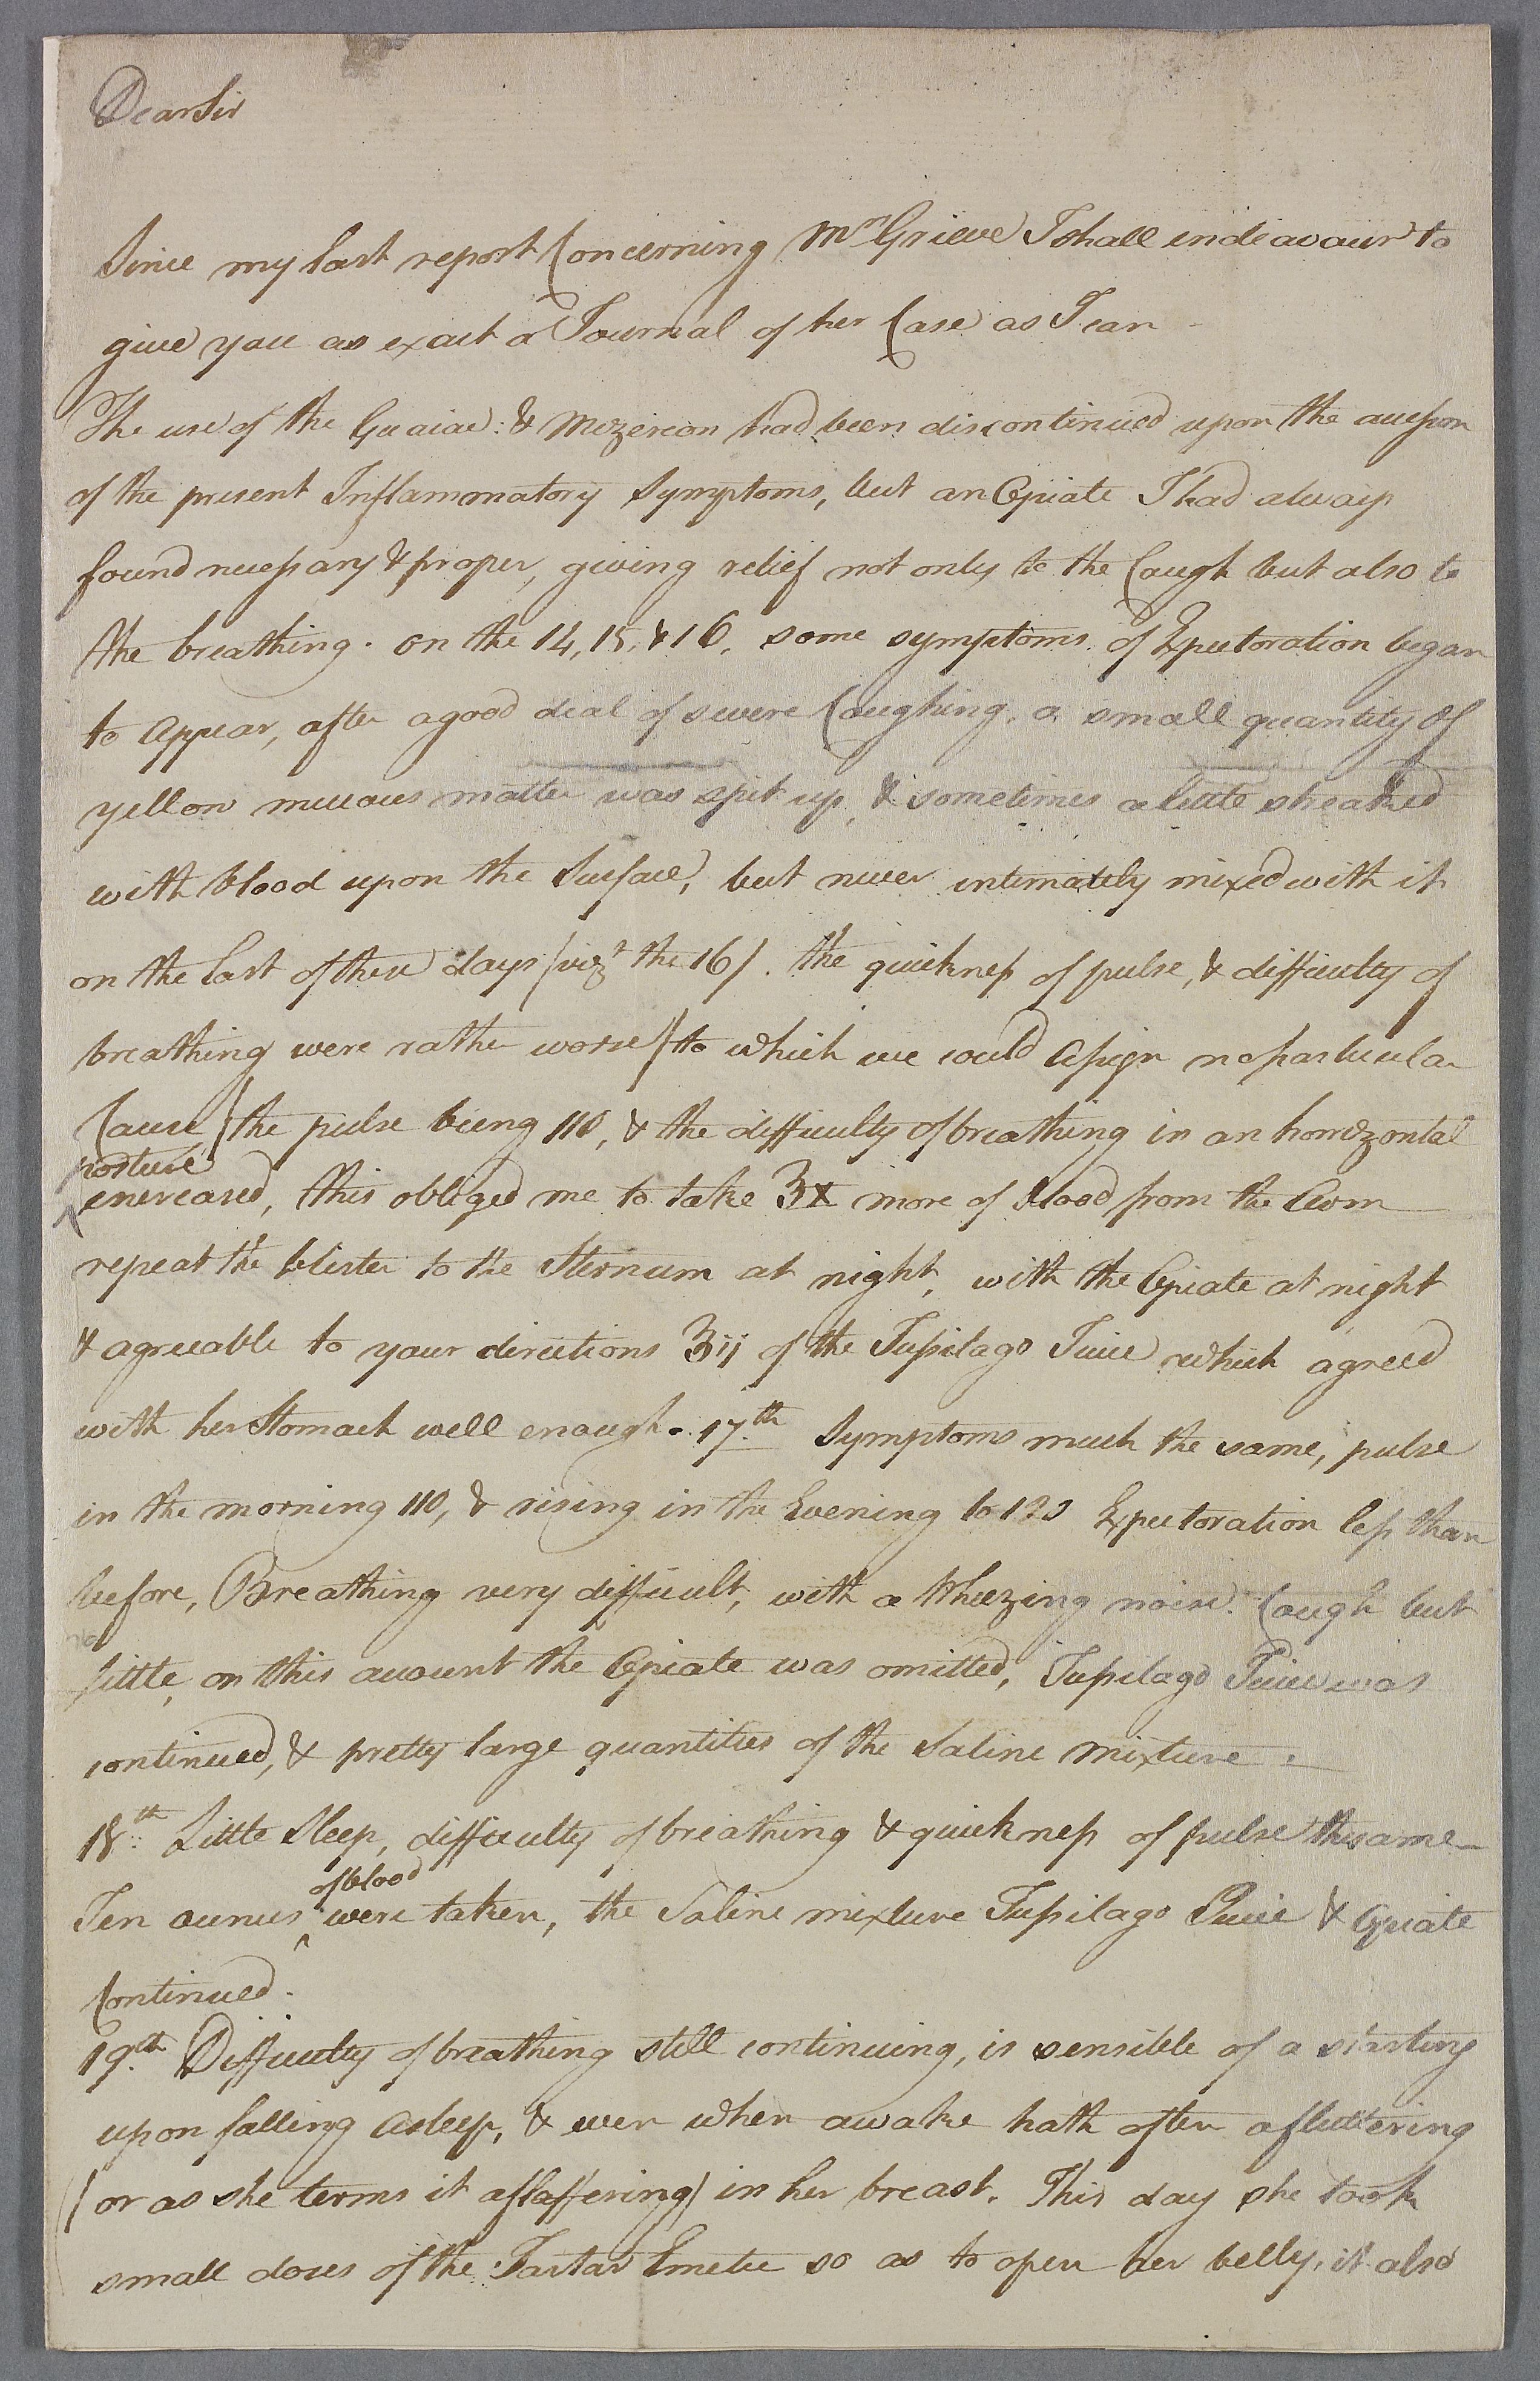 Dear Sir
Since my last report Concerning Mrs Grieve I shall indeavour to
give you as exact a Journal of her Case as I can
The use of the Guaiac: & Mezereon had been discontinued upon the accession
of the present Inflammatory Symptoms, but an Opiate I had always
found necessary & proper, giving relief not only to the Cough but also to
the breathing. on the 14, 15, & 16, some symptoms of Expectoration began
to appear, after a good deal of severe Coughing, a small quantity of
yellow mucous matter was spit up, & sometimes a little streaked
with blood upon the Surface, but never intimately mixed with it
on the last of these days (vizt the 16). the quickness of pulse, & difficulty of
breathing were rather worse (to which we could Assign no particular
Cause) the pulse being 110, & the difficulty of breathing in an horizontal
posture
encreased, this obliged me to take ℥x more of blood from the Arm
repeat the blister to the Sternum at night, with the Opiate at night
& agreeable to your directions ℥ij of the Tussilago Juice which agreed
with her Stomach well enough. 17th Symptoms much the same, pulse
in the morning 110, & rising in the Evening to 120 Expectoration less than
before, Breathing very difficult, with a Wheezing noise. Cough but
little, on this account the Opiate was omitted, Tussilago Juice was
continued, & pretty large quantities of the Saline Mixture.
18th Little Sleep, difficulty of breathing & quickness of pulse the same
of blood
Ten ounces were taken, the Saline mixture Tussilago Juice & Opiate
Continued.
19th Difficulty of breathing still continuing, is sensible of a starting
upon falling asleep, & even when awake hath often a fluttering
(or as she terms it a flaffering) in her breast. This day she took
small doses of the Tartar Emetic so as to open her belly, it also